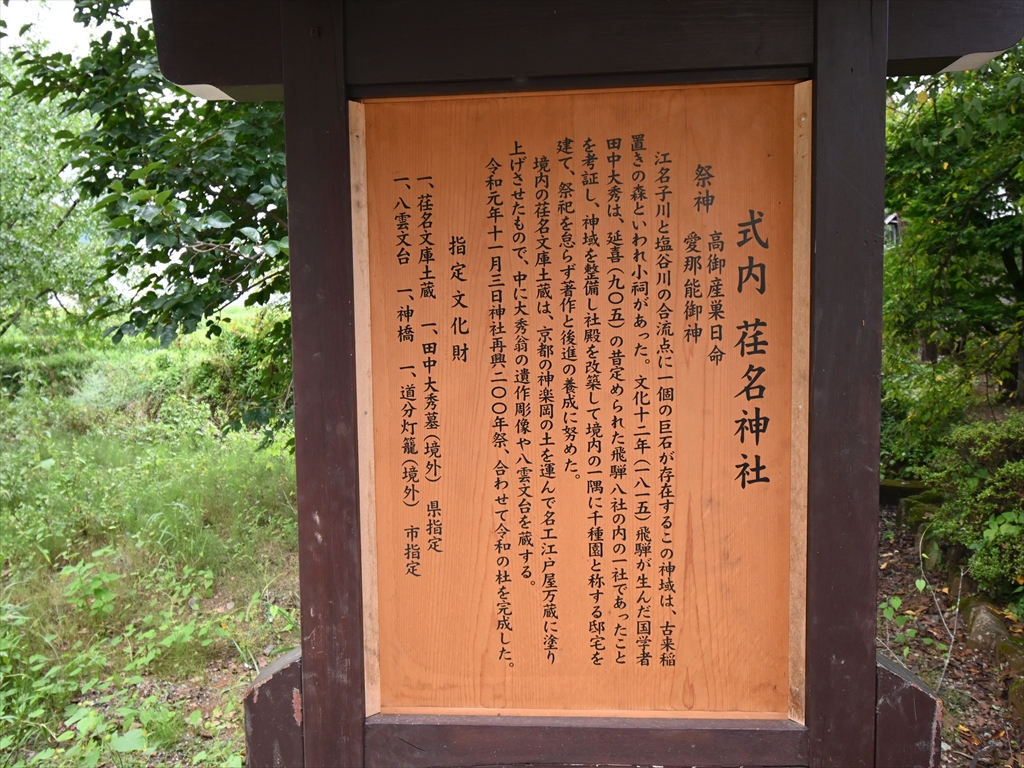 式内 荏名神社
祭神 高御産巣日命
愛那能御神
江名子川と塩谷川の合流点に一個の巨石が存在するこの神域は、古来稲
置きの森といわれ小祠があった。文化十二年(一八一五)飛騨が生んだ国学者
田中大秀は、延喜(九〇五)の昔定められた飛騨八社の内の一社であったこと
を考証し、神域を整備し社殿を改築して境内の一隅に千種園と称する邸宅を
建て、祭祀を怠らず著作と後進の養成に努めた。
境内の荏名文庫土蔵は、京都の神楽岡の土を運んで名工江戸屋万蔵に塗り
上げさせたもので、中に大秀翁の遺作彫像や八雲文台を蔵する。
令和元年十一月三日神社再興二〇〇年祭、合わせて令和の杜を完成した。
指定文化財
一、荏名文庫土蔵 一、田中大秀墓(境外) 県指定
一、八雲文台 一、神橋 一、道分灯籠(境外) 市指定